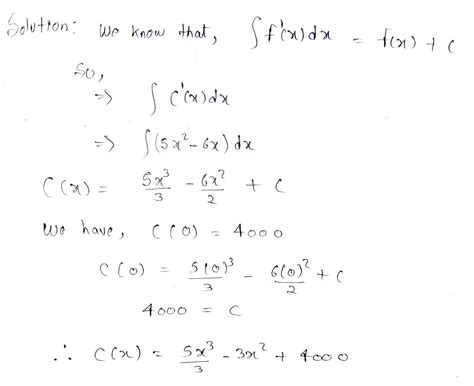 Solution: We know that, ∫f'(x)dx = f(x) + C
So,
=> ∫ C'(x)dx
=> ∫(5x²-6x)dx
C(x) = 5x³/3 - 6x²/2 + C
We have, C(0) = 4000
C(0) = 5(0)³/3 - 6(0)²/2 + C
4000 = C
∴ C(x) = 5x³/3 - 3x² + 4000